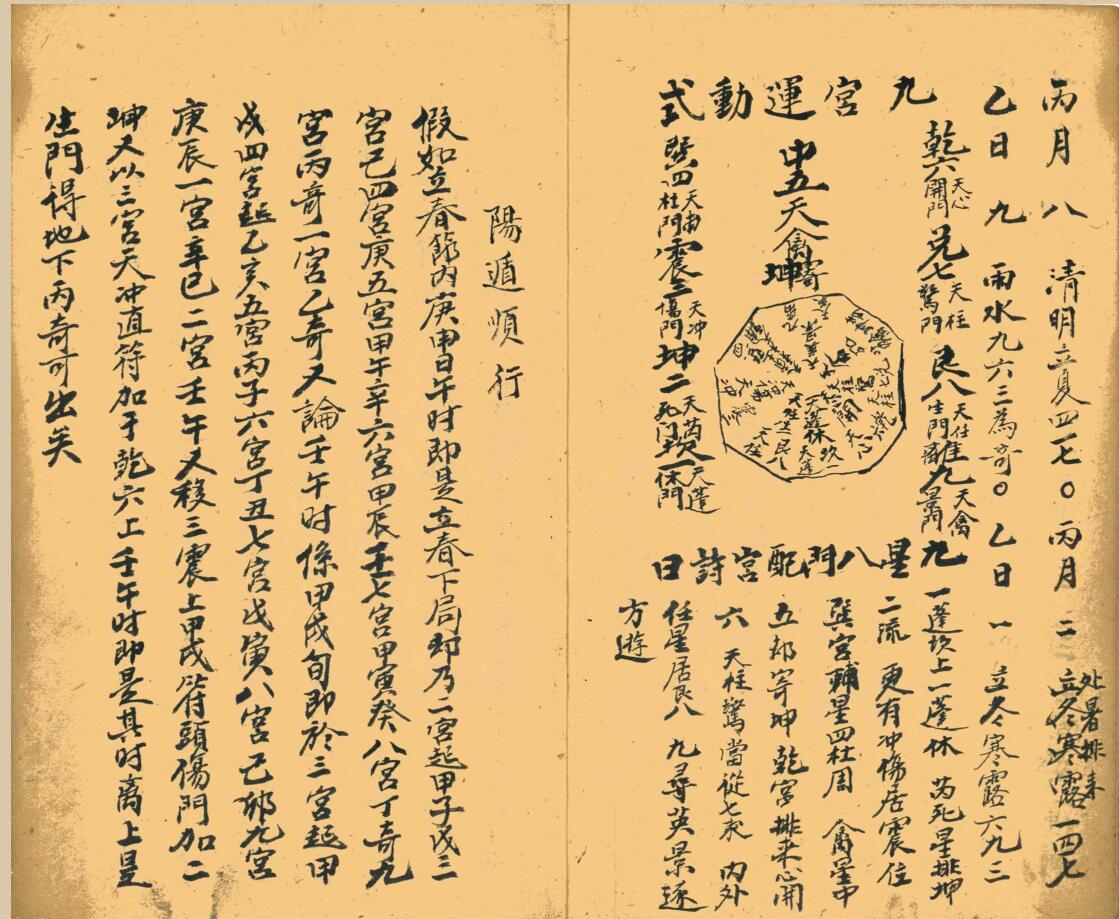 丙月 八 清明立夏四七〇 丙月 二 处暑排来 立冬寒露一四七
乙日 九 雨水九六三為奇〇 乙日 一 立冬寒露六九三
九宮運動式
乾六 天心 開門 兌七 天柱 驚門 艮八 天任 生門 離九 天禽 景門
中五天禽寄坤
巽四 天甫 杜門 震三 天冲 傷門 坤二 天芮 死门 坎一 天蓬 休門
九星八門配宮詩曰
一蓬坎上一蓬休 芮死星排坤
二流 更有冲傷居震位
巽宮輔星四杜周 禽星中
五都寄坤 乾宮排来心開
六 天柱驚當從七求 内外
任星居艮八 九尋英景逐
方遊
陽遁順行
假如立春節内庚申日午时即是立春下局却乃二宮起甲子戊三
宮己四宮庚五宮甲午辛六宮甲辰壬七宮甲寅癸八宮丁奇九
宮丙奇一宮乙奇又論壬午时係甲戌旬即於三宮起甲
戌四宮起乙亥五宮丙子六宮丁丑七宮戊寅八宮己卯九宮
庚辰一宮辛巳二宮壬午又移三震上甲戌符頭傷門加二
坤又以三宮天冲直符加于乾六上壬午时即是其时离上是
生門得地下丙奇可出矣